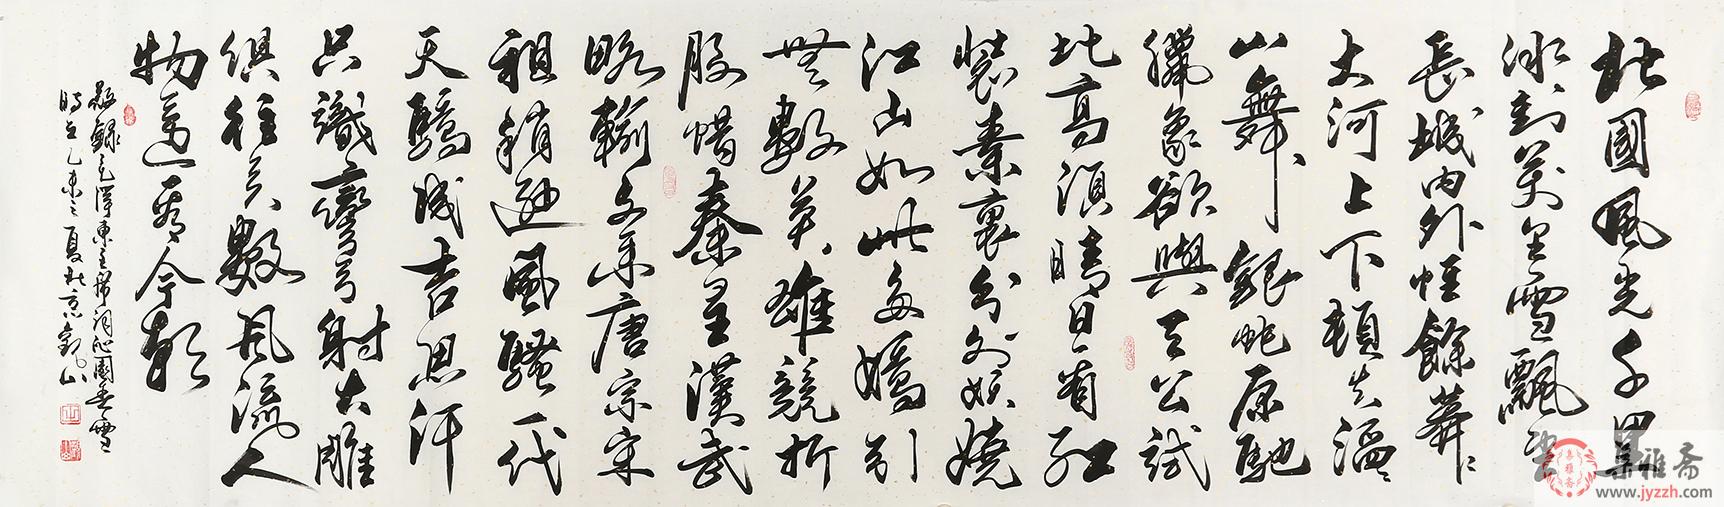 北國風光千里
冰封萬里雪飄望
長城內外惟餘莽々
大河上下頓失滔々
山舞銀蛇原馳
臘象欲與天公試
比高須晴日看紅
裝素裹分外妖嬈
江山如此多嬌引
無數英雄競折
腰惜秦皇漢武
略輸文采唐宗宋
祖稍遜風騷一代
天驕成吉思汗
只識彎弓射大雕
俱往矣數風流人
物還看今朝
敬錄毛澤東主席詞沁園春雪
時在乙未之夏於京
集雅斋
www.jyzzh.com